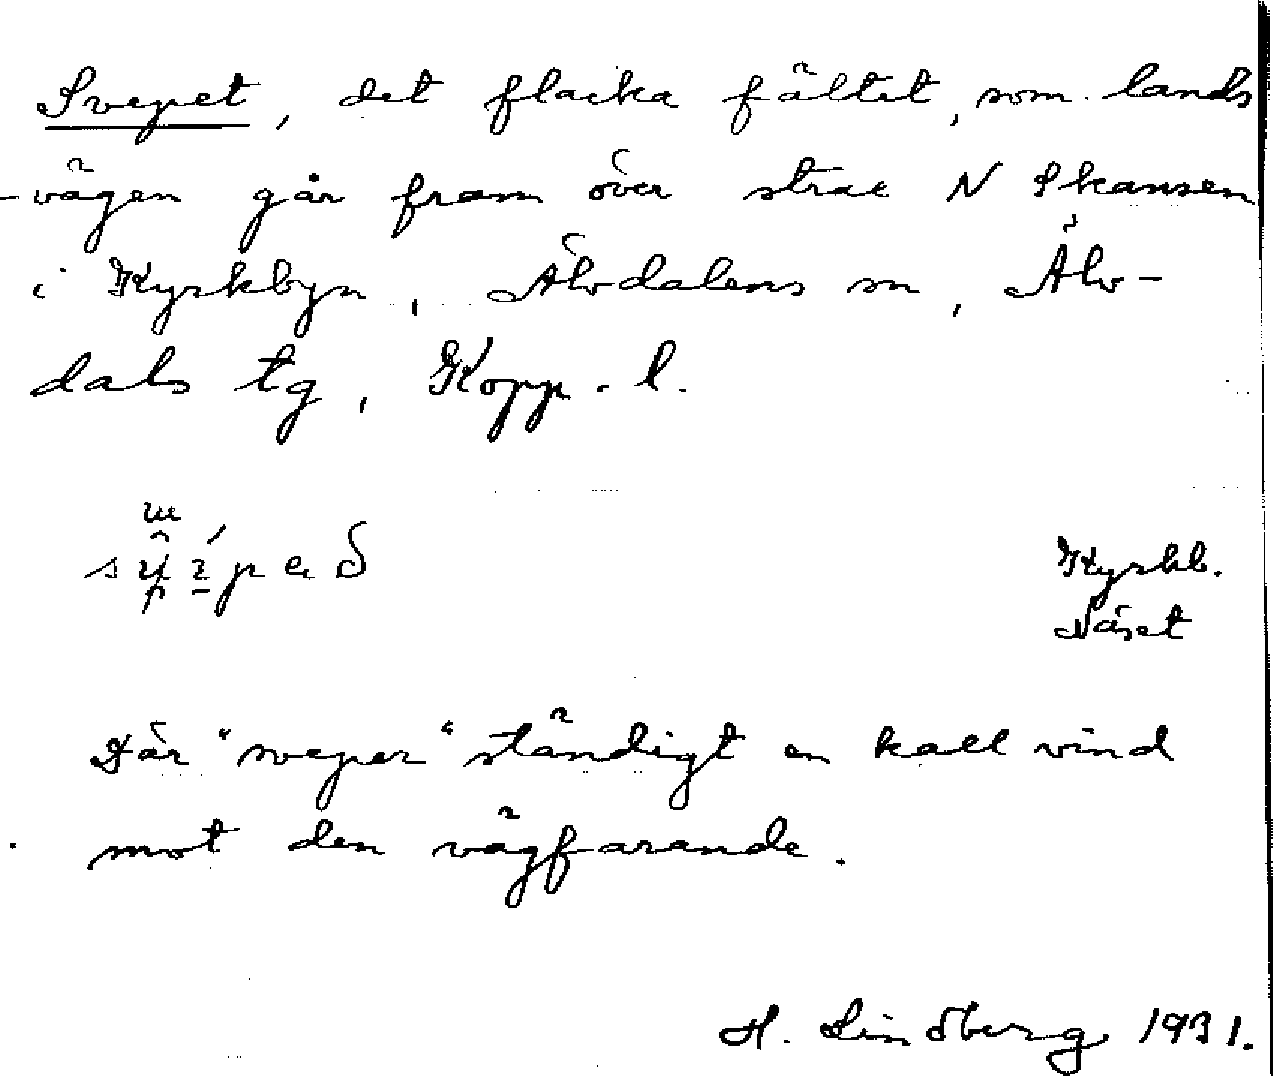 Svepet, det flacka fältet, som lands
-vägen går fram över strax N Skansen
i Kyrkbyn, Älvdalens sn, Älv-
dals tg, Kopp. l.
Kyrkb.
Näset
Där "sveper" ständigt en kall vind
mot den vägfarande.
H. Lindberg 1931.